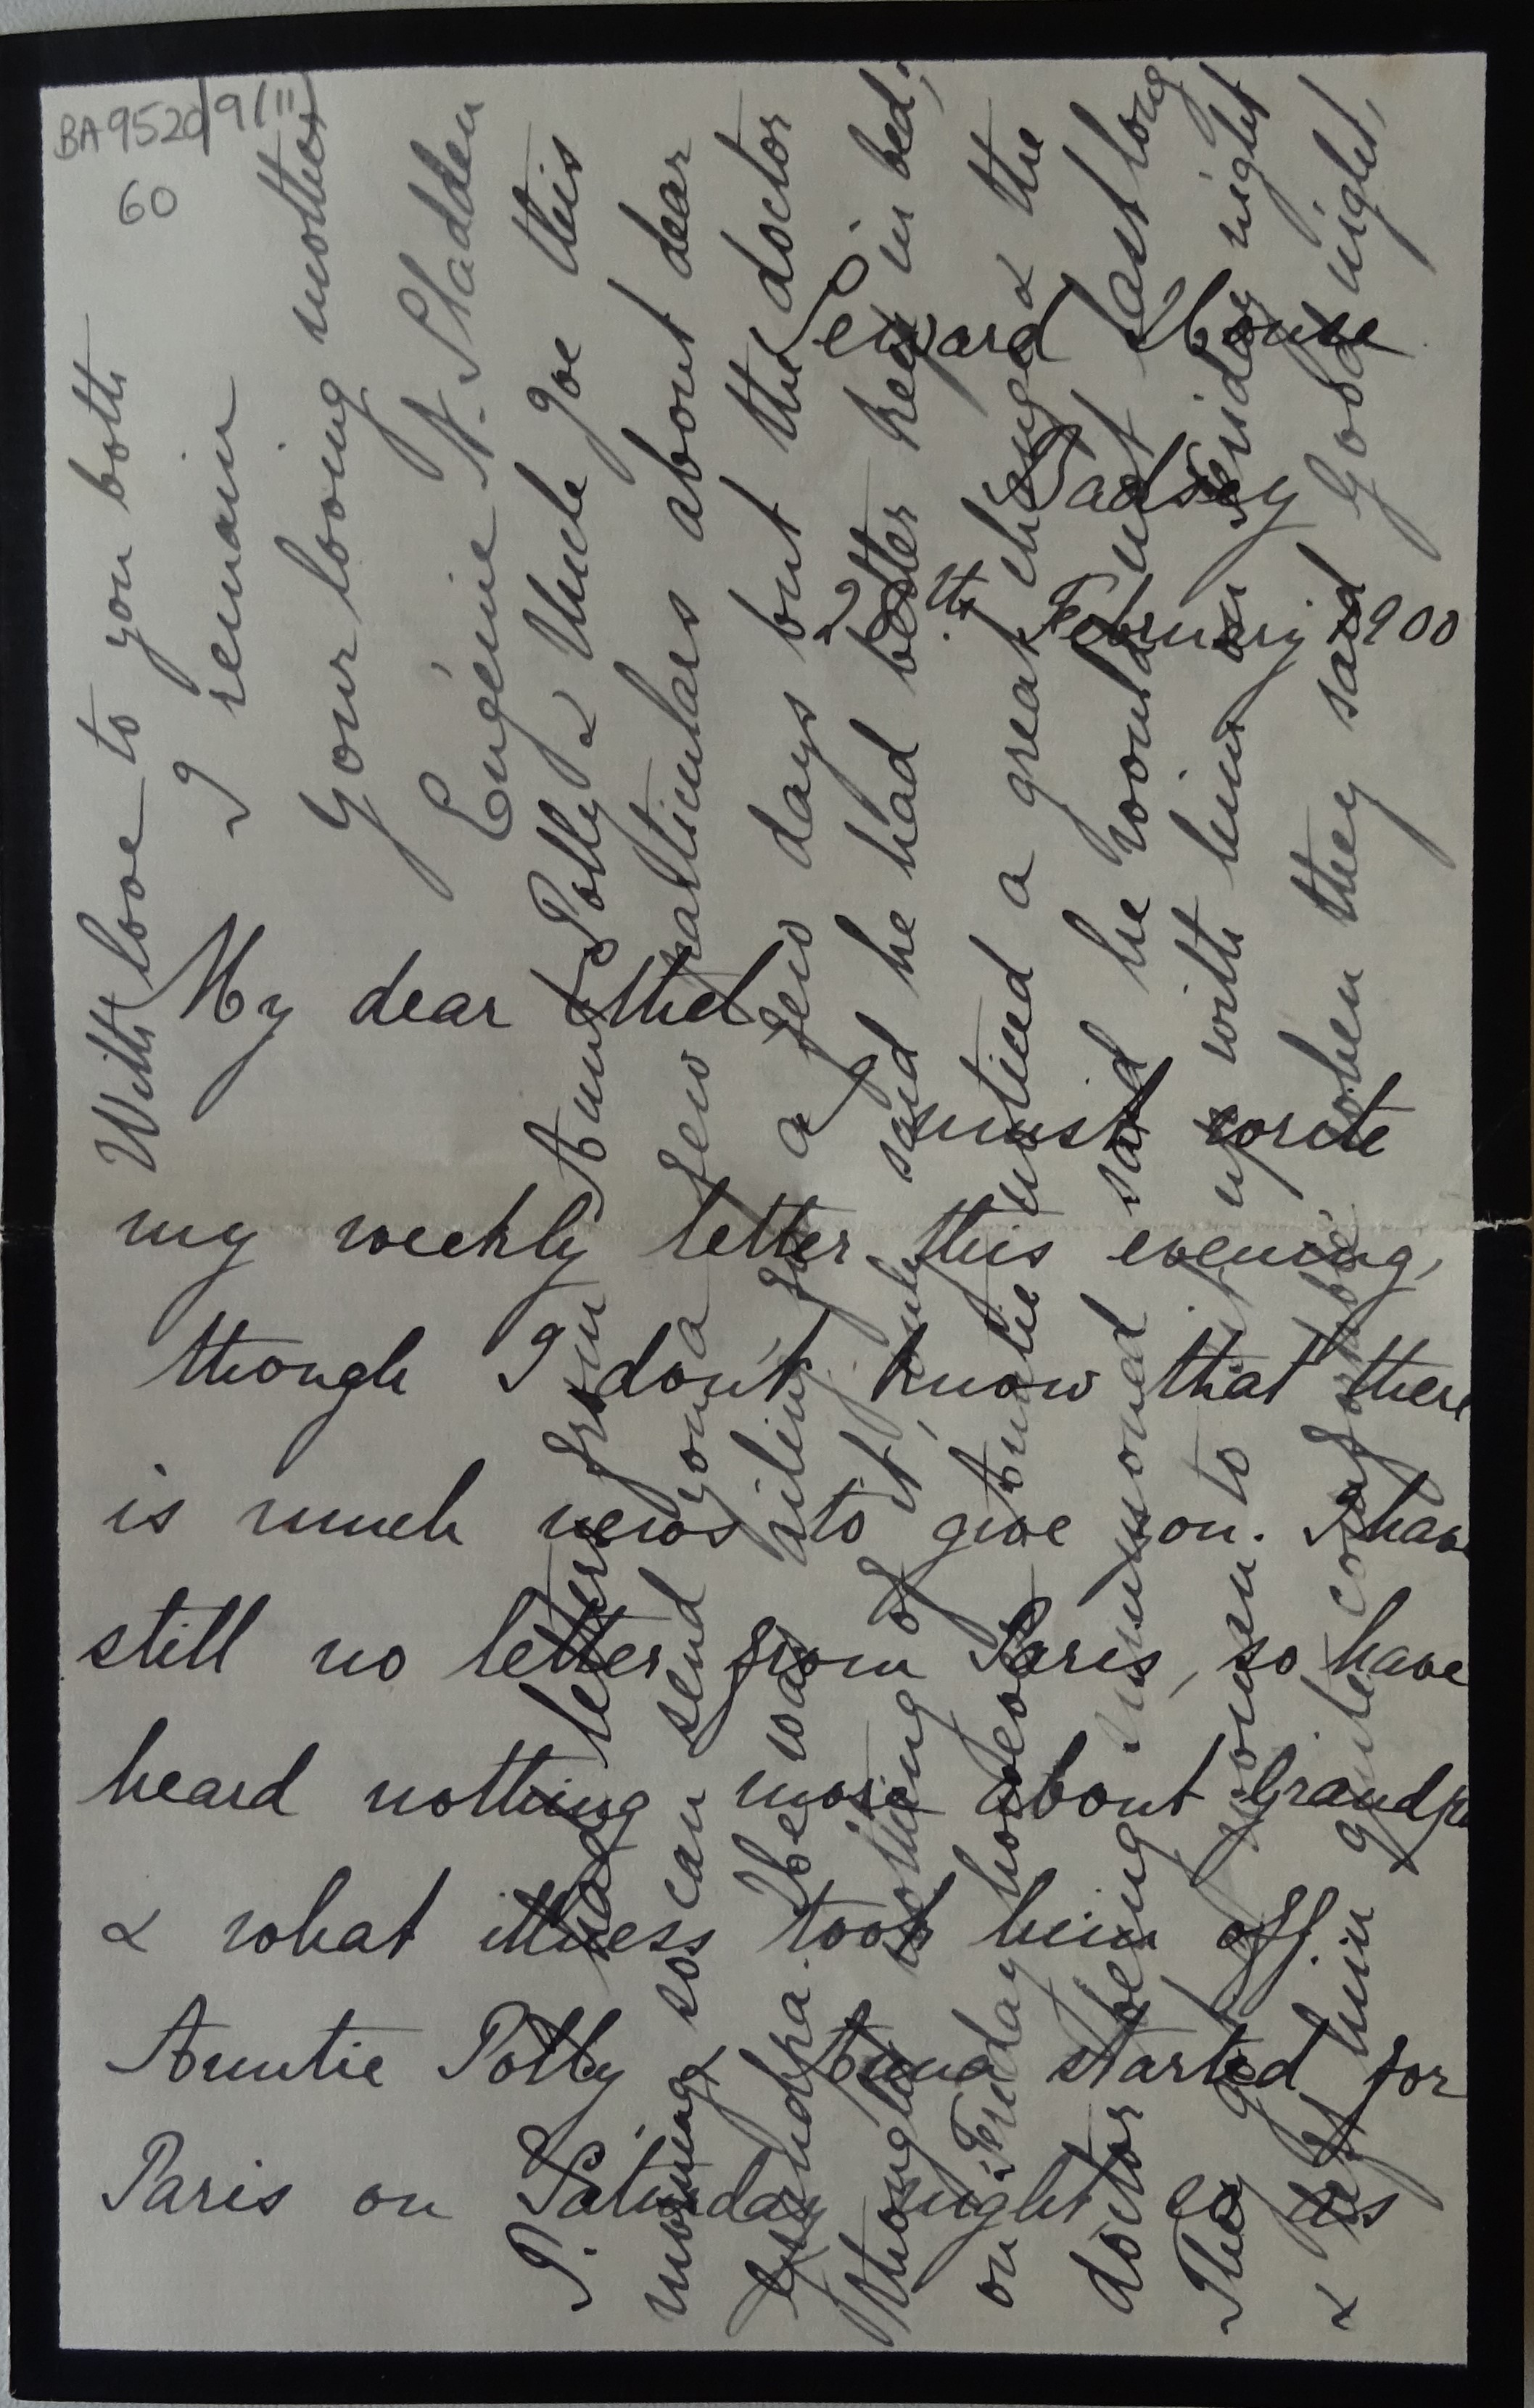 BA 9520/9/11
60
Seward House
Badsey
20th February 1900
My dear Ethel
I must write
my weekly letter this evening,
though I don't know that there
is much news to give you. I have
still no letter from Paris, so have
heard nothing more about Grandpa
& what illness took him off.
Auntie Polly & started for
Paris on Saturday night so as
With love to you both
I remain
Your loving mother
Eugénie N. Sladden
P.S. had letters from Aunt Polly & Uncle Joe this
morning so can send you a few particulars about dear
Grandpa. He was ailing for a few days but the doctor
thought nothing of it, only said he had better keep in bed;
on Friday however Auntie noticed a great change & the
doctor being summoned said he would not last long
They got a woman to sit up with him on Friday night
& left him quite comfortable, when they said Good night,